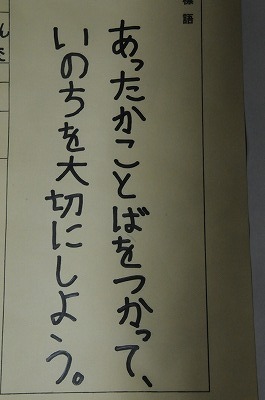 標語
あったかことばをつかって、
いのちを大切にしよう。